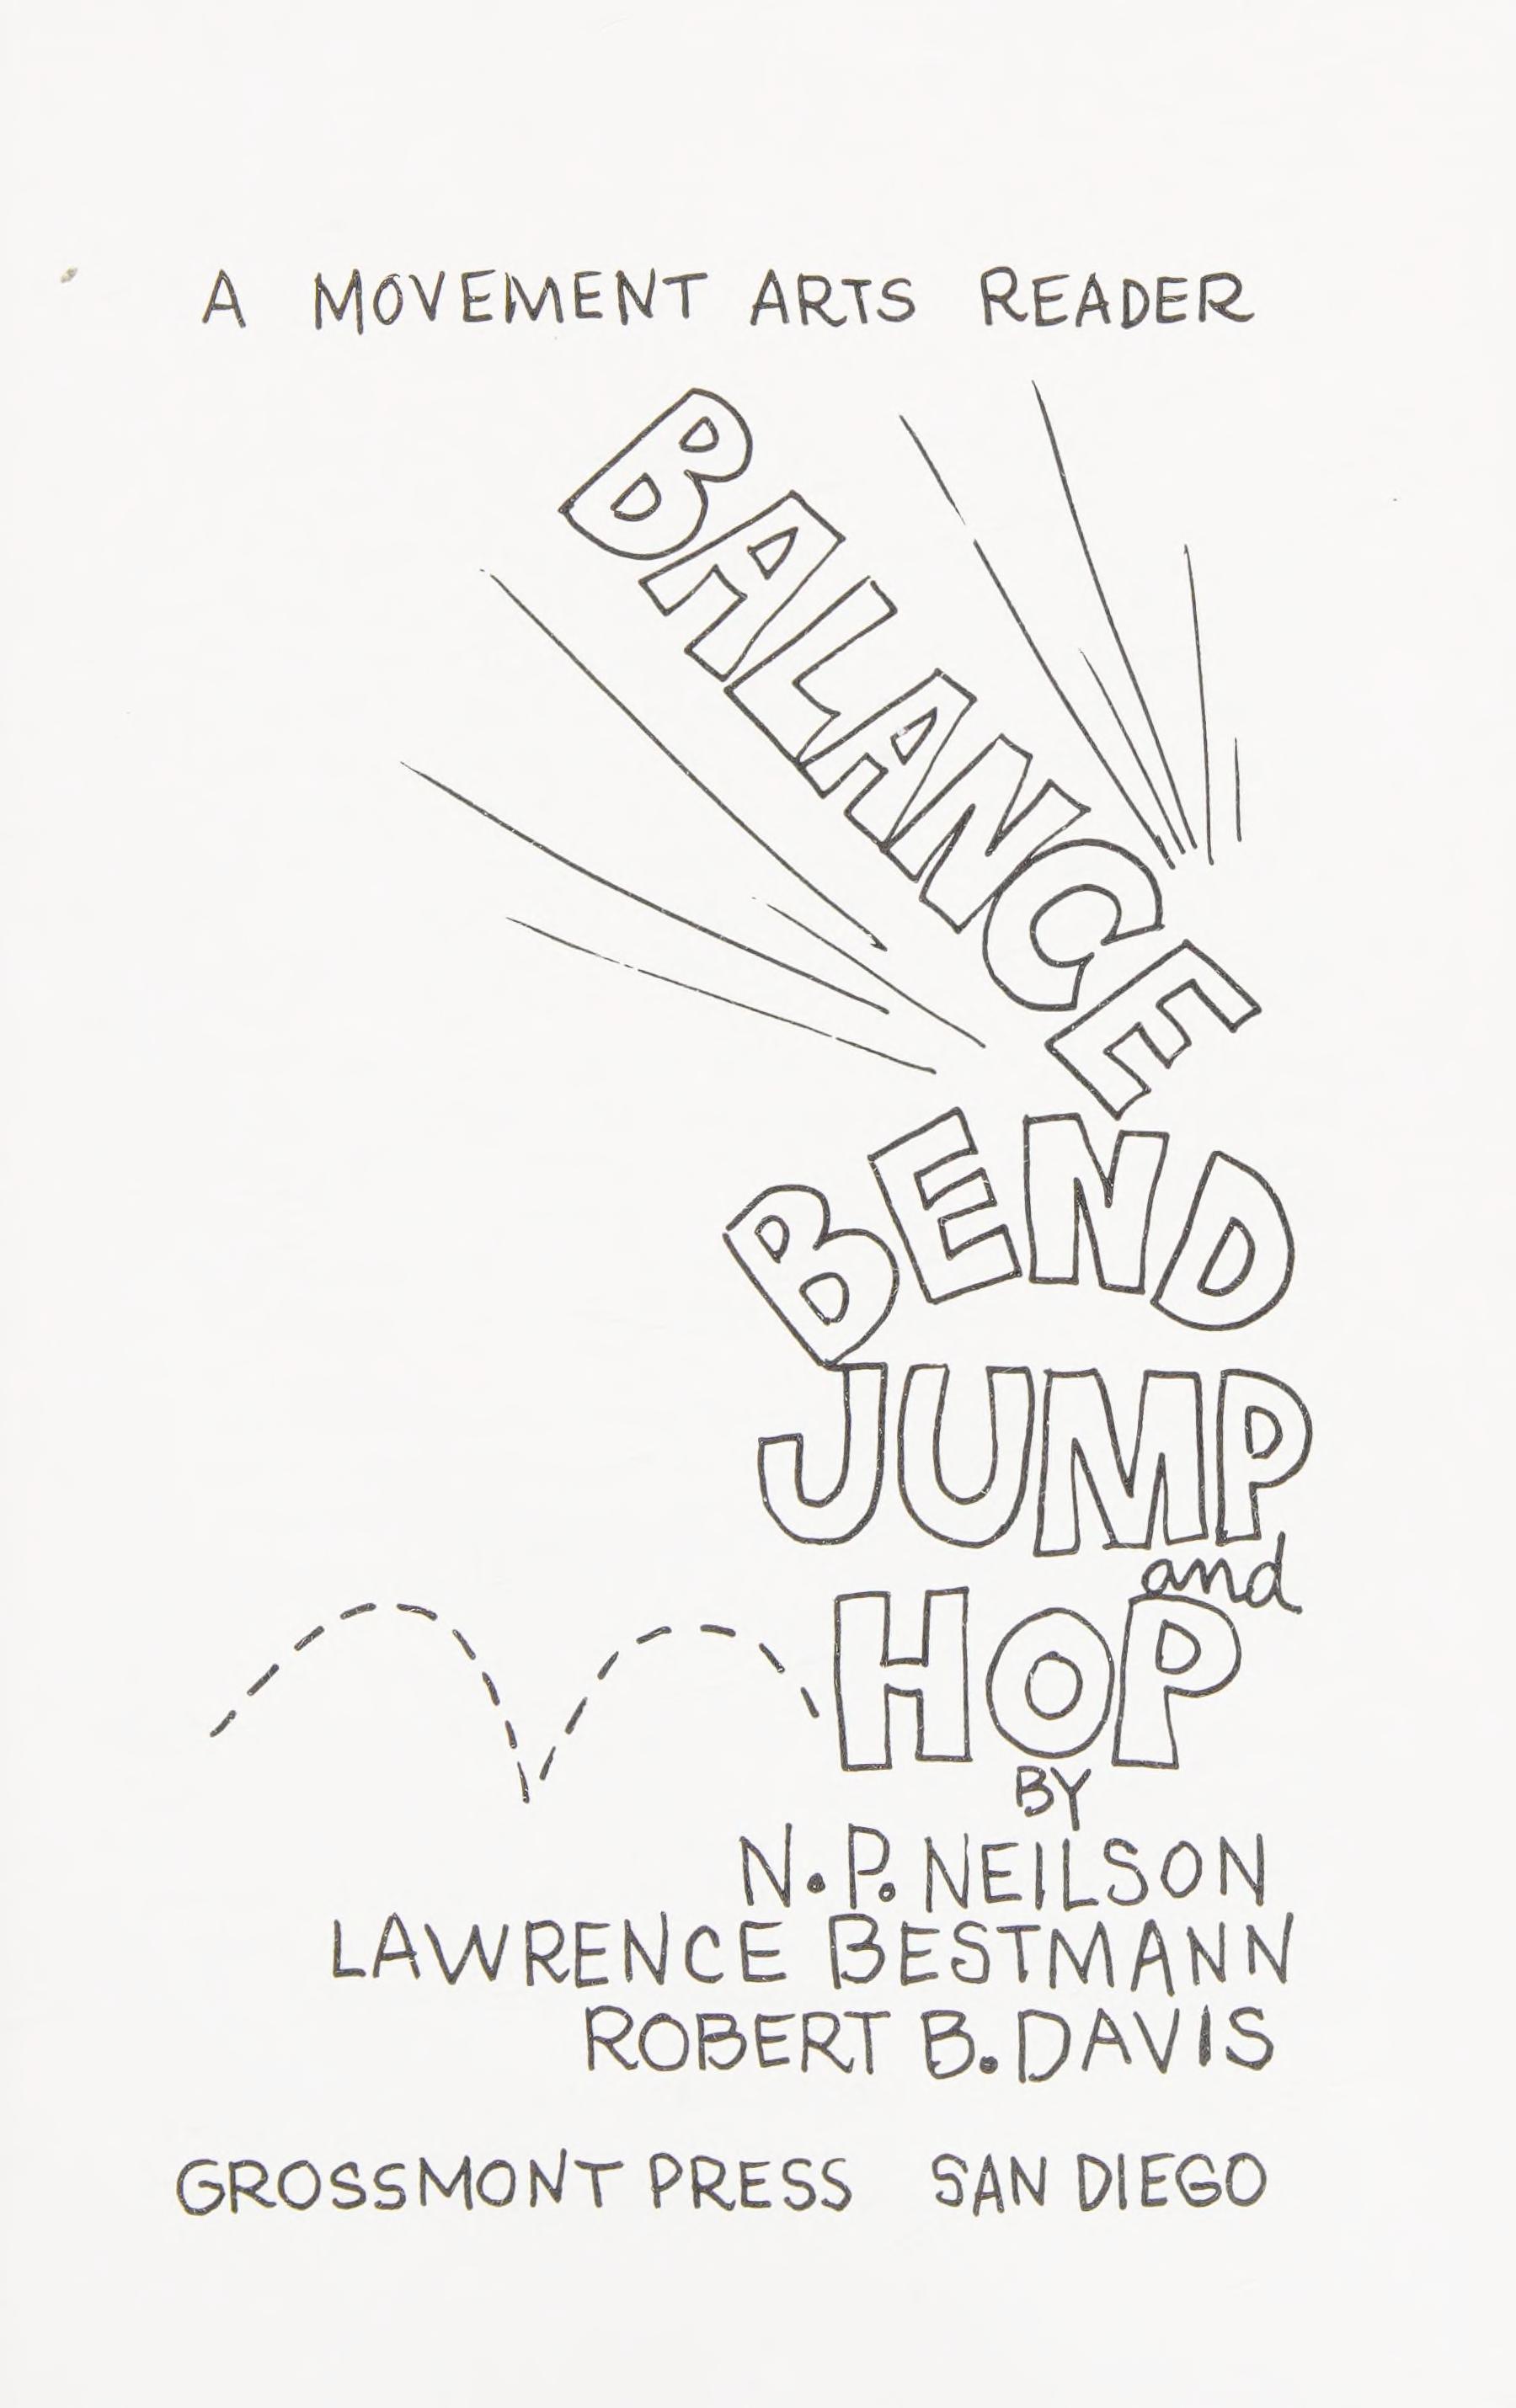 A MOVEMENT ARTS READER
BALANCE
BEND
JUMP
and
HOP
BY
N.P. NEILSON
LAWRENCE BESTMANN
ROBERT B. DAVIS
GROSSMONT PRESS SAN DIEGO